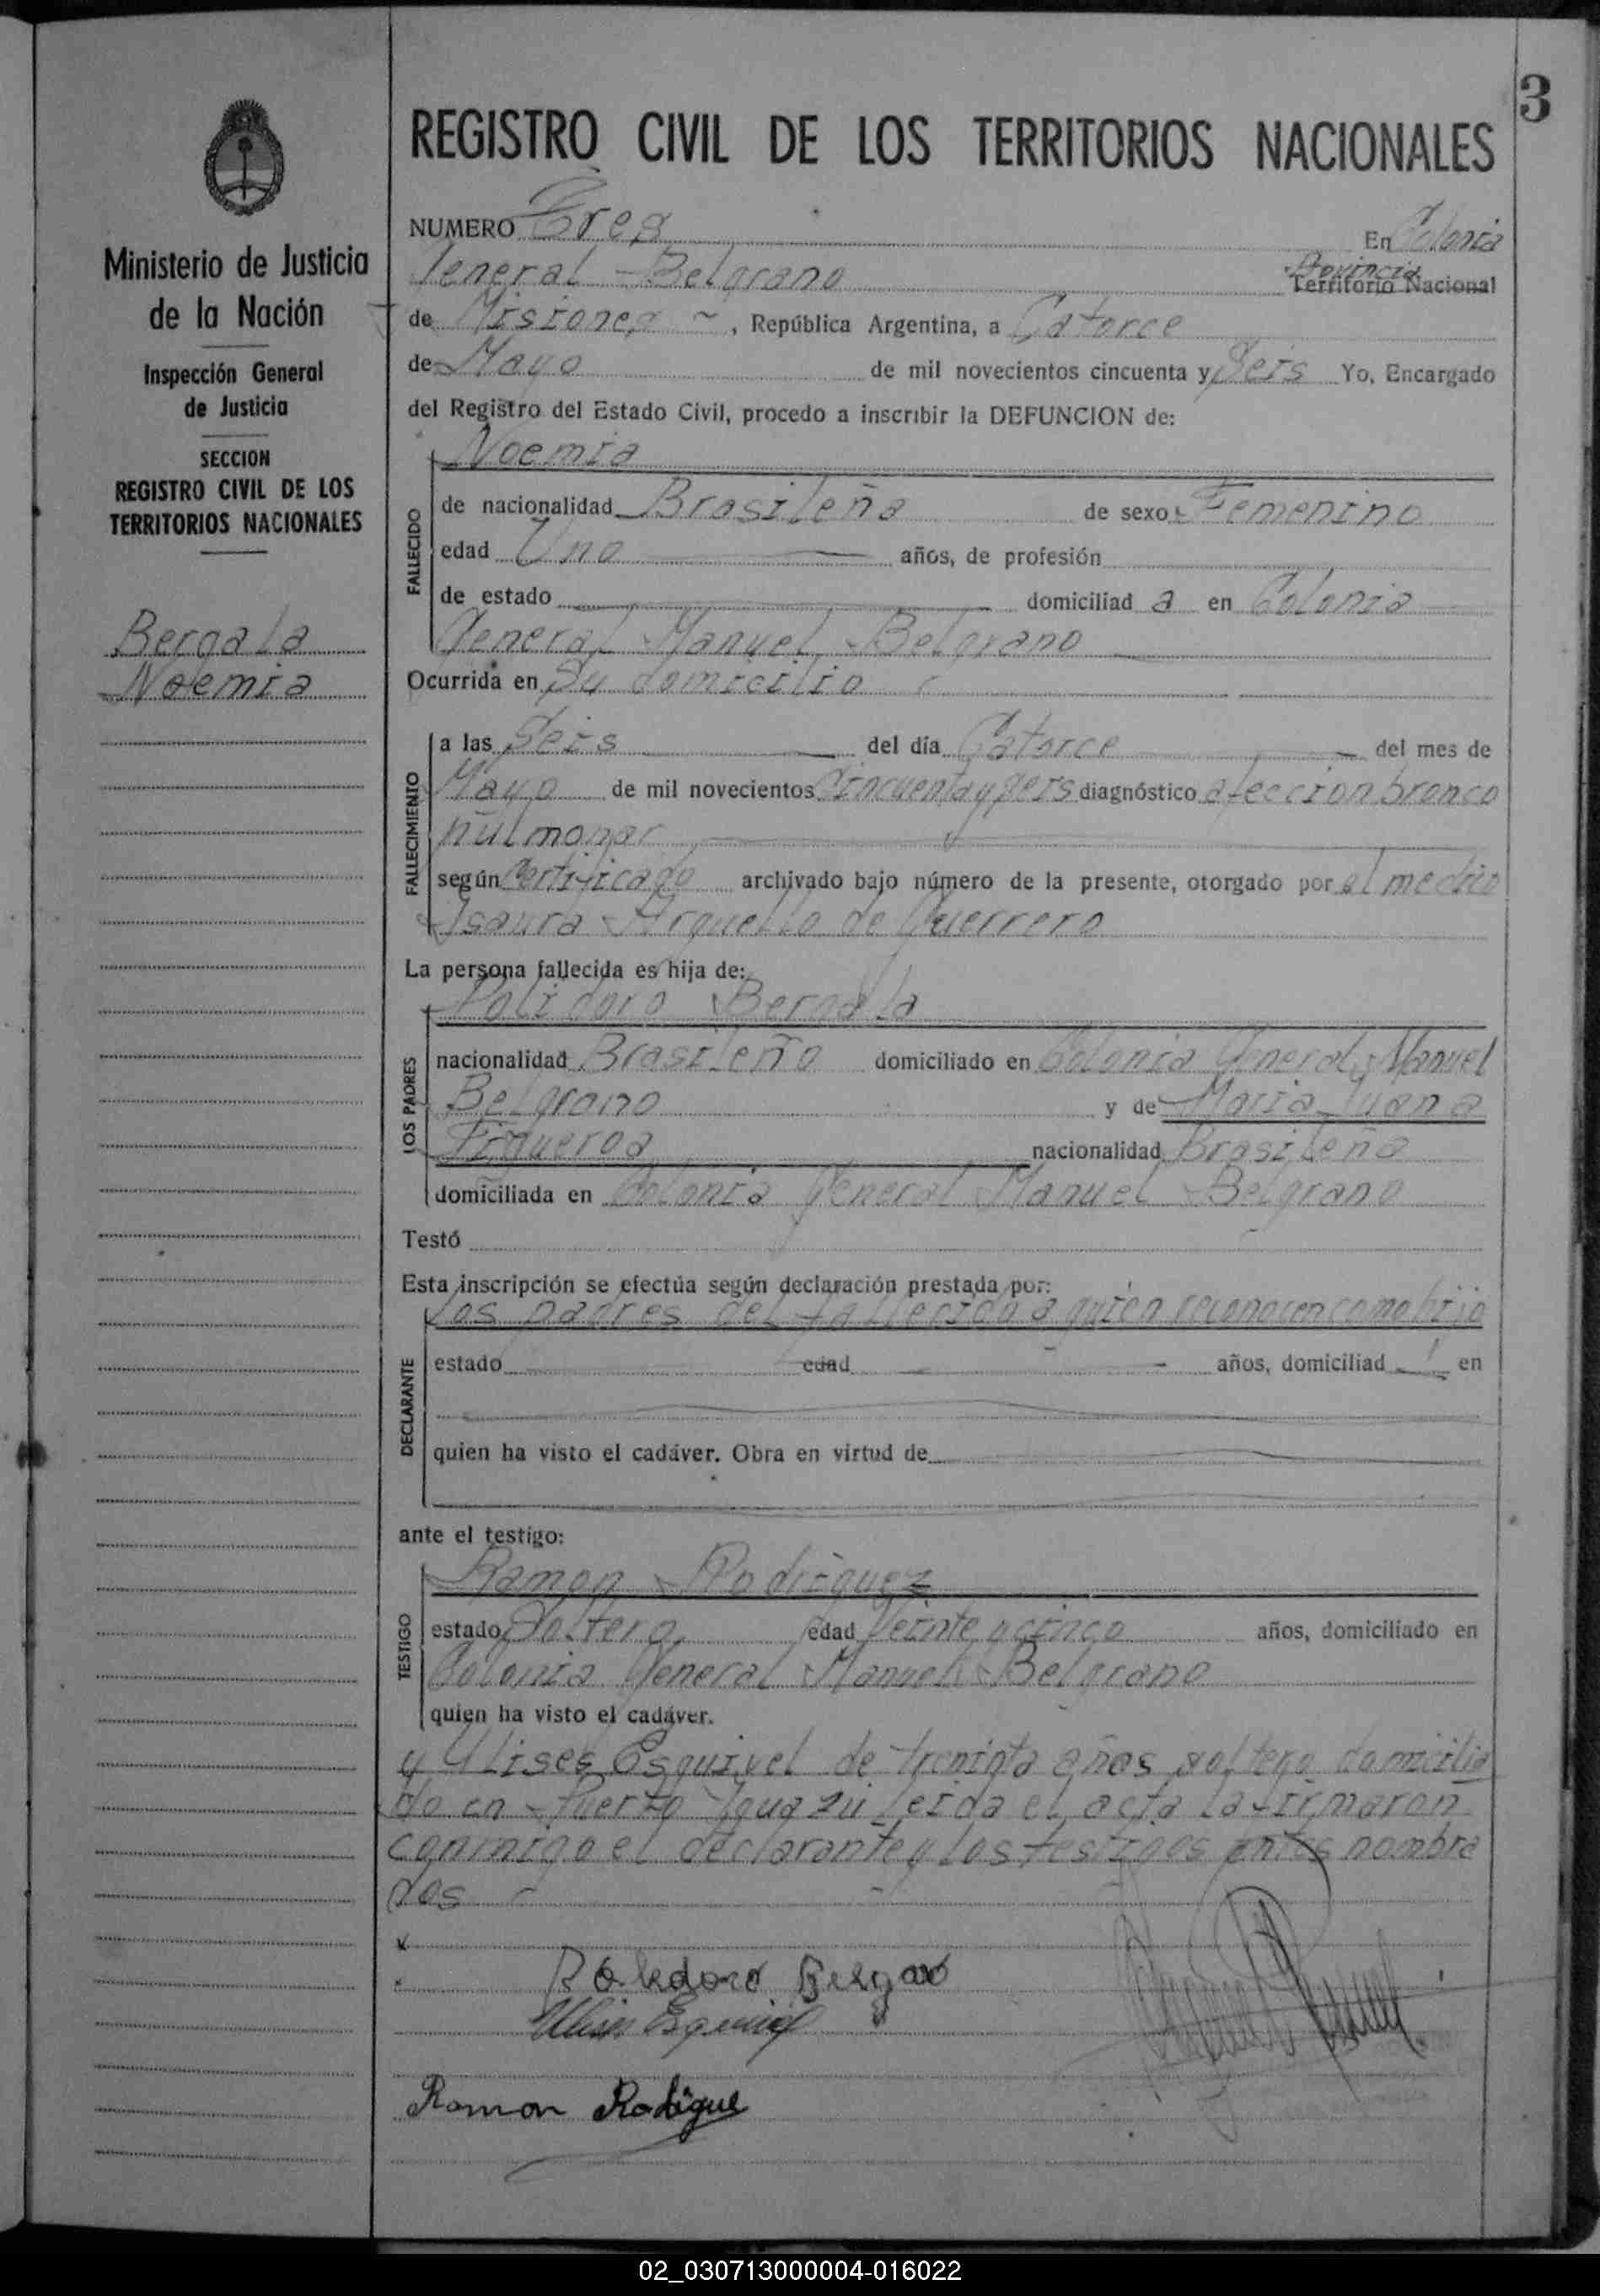 3
REGISTRO CIVIL DE LOS TERRITORIOS NACIONALES
Ministerio de Justicia
de la Nación
Inspección General
de Justicia
SECCION
REGISTRO CIVIL DE LOS
TERRITORIOS NACIONALES
Bergala
Noemia
NUMERO Tres En Colonia
General Belgrano Provincia Territorio Nacional
de Misiones ~, República Argentina, a Catorce
de Mayo de mil novecientos cincuenta y Seis Yo, Encargado
del Registro del Estado Civil, procedo a inscribir la DEFUNCION de:
FALLECIDO
Noemia
de nacionalidad Brasileña de sexo Femenino
edad Uno años, de profesión
de estado domiciliad a en Colonia
General Manuel Belgrano
Ocurrida en Su domicilio
FALLECIMIENTO
a las Seis del día Catorce del mes de
Mayo de mil novecientos Cincuenta y seis diagnóstico afeccion bronco
pulmonar
según Certificado archivado bajo número de la presente, otorgado por el medico
Isaura Arguello de Guerrero
La persona fallecida es hija de:
LOS PADRES
Polidoro Bergala
nacionalidad Brasileño domiciliado en Colonia General Manuel
Belgrano y de Maria Juana
Figueroa nacionalidad Brasileña
domiciliada en Colonia General Manuel Belgrano
Testó
Esta inscripción se efectúa según declaración prestada por:
DECLARANTE
Los padres del fallecido a quien reconocen como hijo
estado edad años, domiciliad en
quien ha visto el cadáver. Obra en virtud de
ante el testigo:
TESTIGO
Ramon Rodriguez
estado Soltero edad Veinte y cinco años, domiciliado en
Colonia General Manuel Belgrano
quien ha visto el cadáver.
y Ulises Esquivel de treninta años soltero domicilia
do en Puerto Iguazú leida el acta la firmaron
conmigo el declarante y los testigos antes nombra
dos
Ulises Esquivel
Ramon Rodigue
02_030713000004-016022